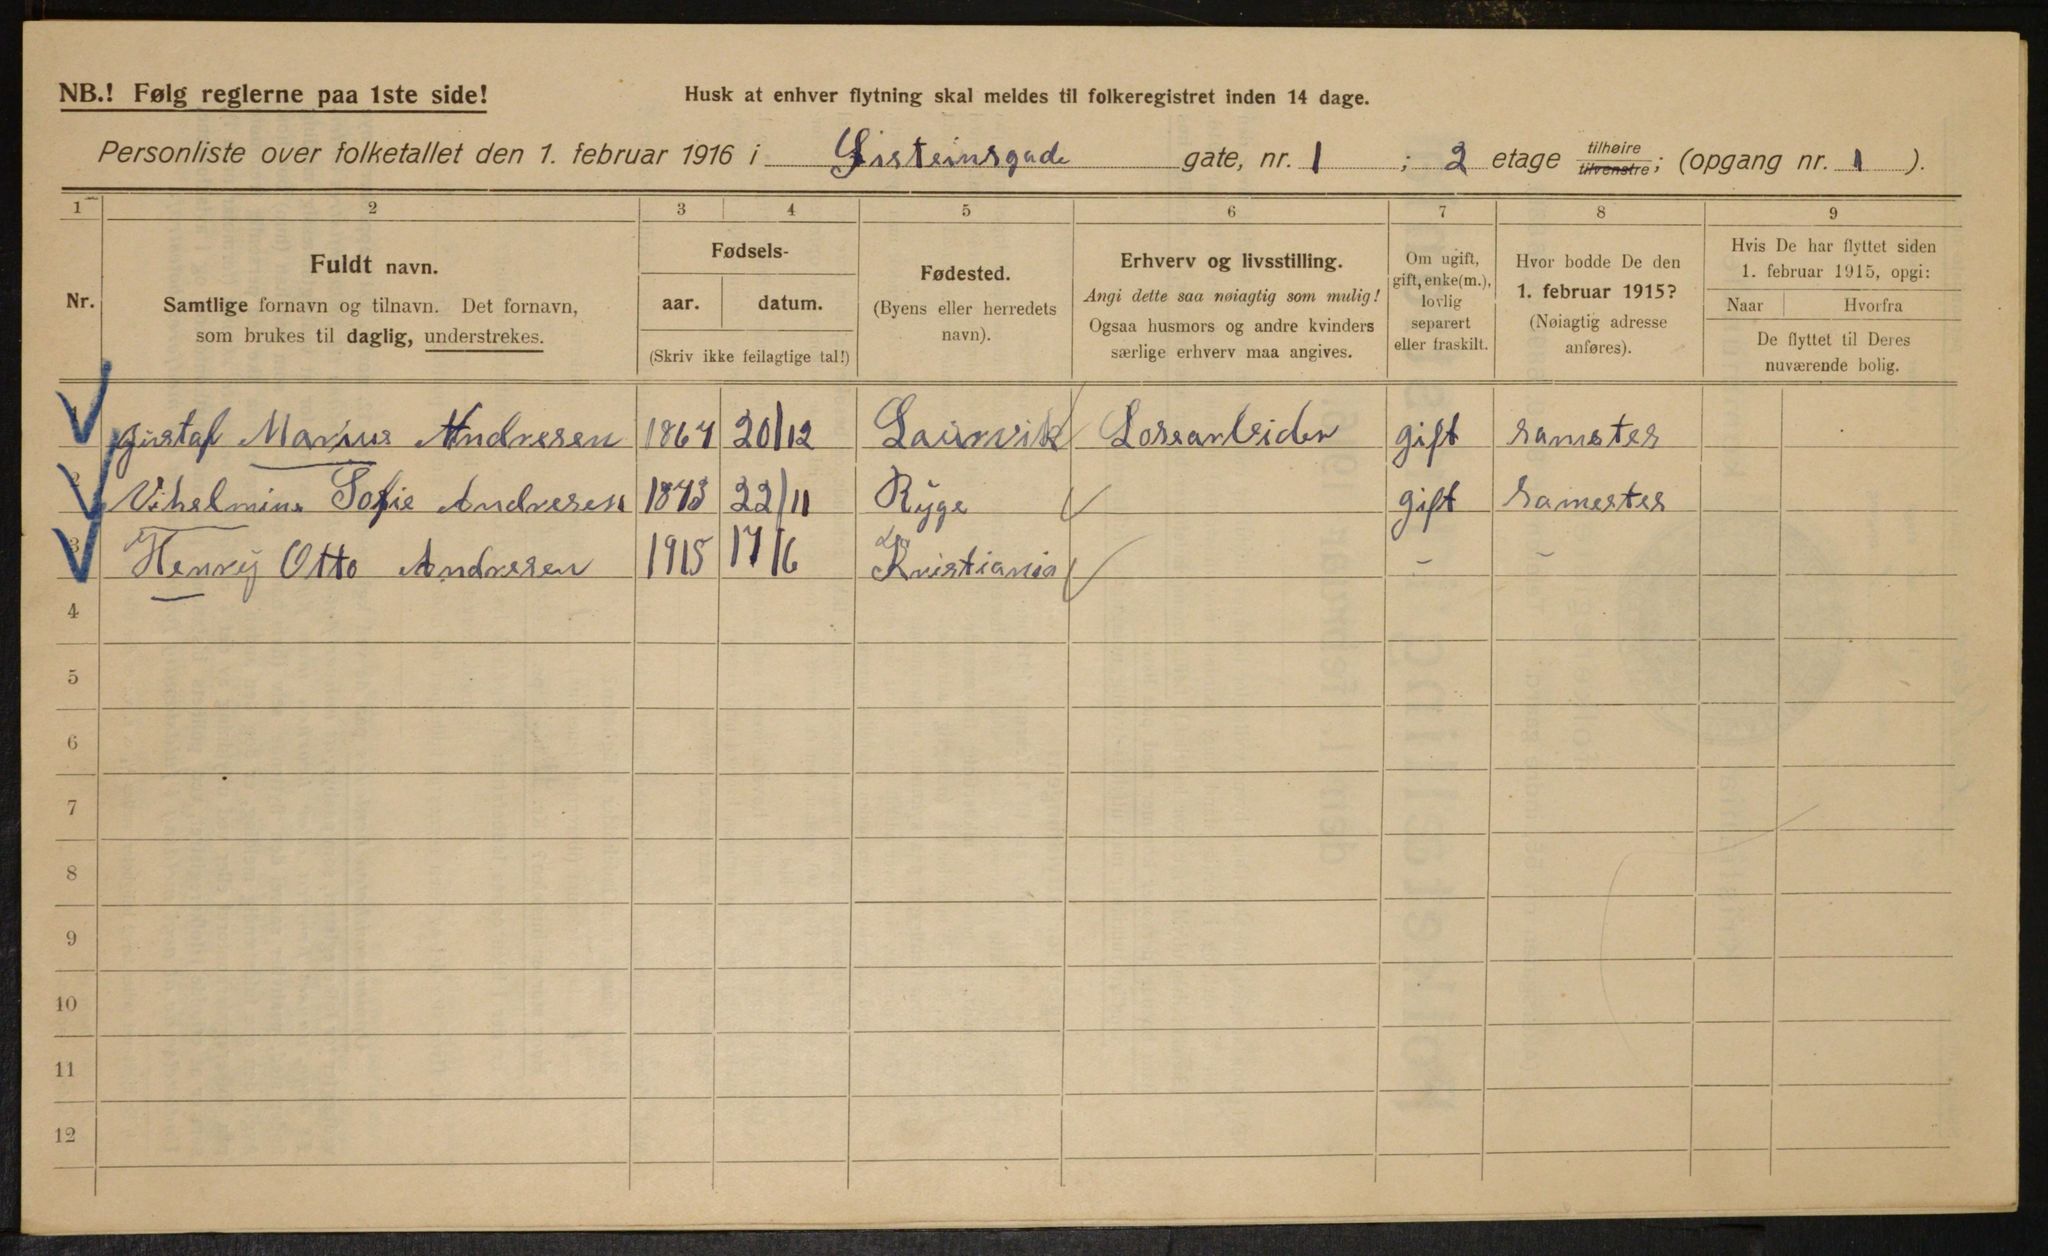 NB.! Følg reglerne paa 1ste side!
Husk at enhver flytning skal meldes til folkeregistret inden 14 dage.
Personliste over folketallet den 1. februar 1916 i Eisteinsgade gate, nr. 1 ; 2 etage tilhøire tilvenstre; (opgang nr. 1 ).
1 2 3 4 5 6 7 8 9
Nr.
Fuldt navn.
Samtlige fornavn og tilnavn. Det fornavn,
som brukes til daglig, understrekes.
Fødsels-
aar. datum.
(Skriv ikke feilagtige tal!)
Fødested.
(Byens eller herredets
navn).
Erhverv og livsstilling.
Angi dette saa nøiagtig som mulig!
Ogsaa husmors og andre kvinders
særlige erhverv maa angives.
Om ugift,
gift, enke(m.),
lovlig
separert
eller fraskilt.
Hvor bodde De den
1. februar 1915?
(Nøiagtig adresse
anføres).
Hvis De har flyttet siden
1. februar 1915, opgi:
Naar Hvorfra
De flyttet til Deres
nuværende bolig.
1 Gustaf Marius Andresen 1867 20/12 Laurvik Lossearbeider gift samestes
2 Vihelmine Sofie Andresen 1873 22/11 Ryge gift Samestes
3 Henry Otto Andresen 1915 17/6 Kristiania - -
4
5
6
7
8
9
10
11
12